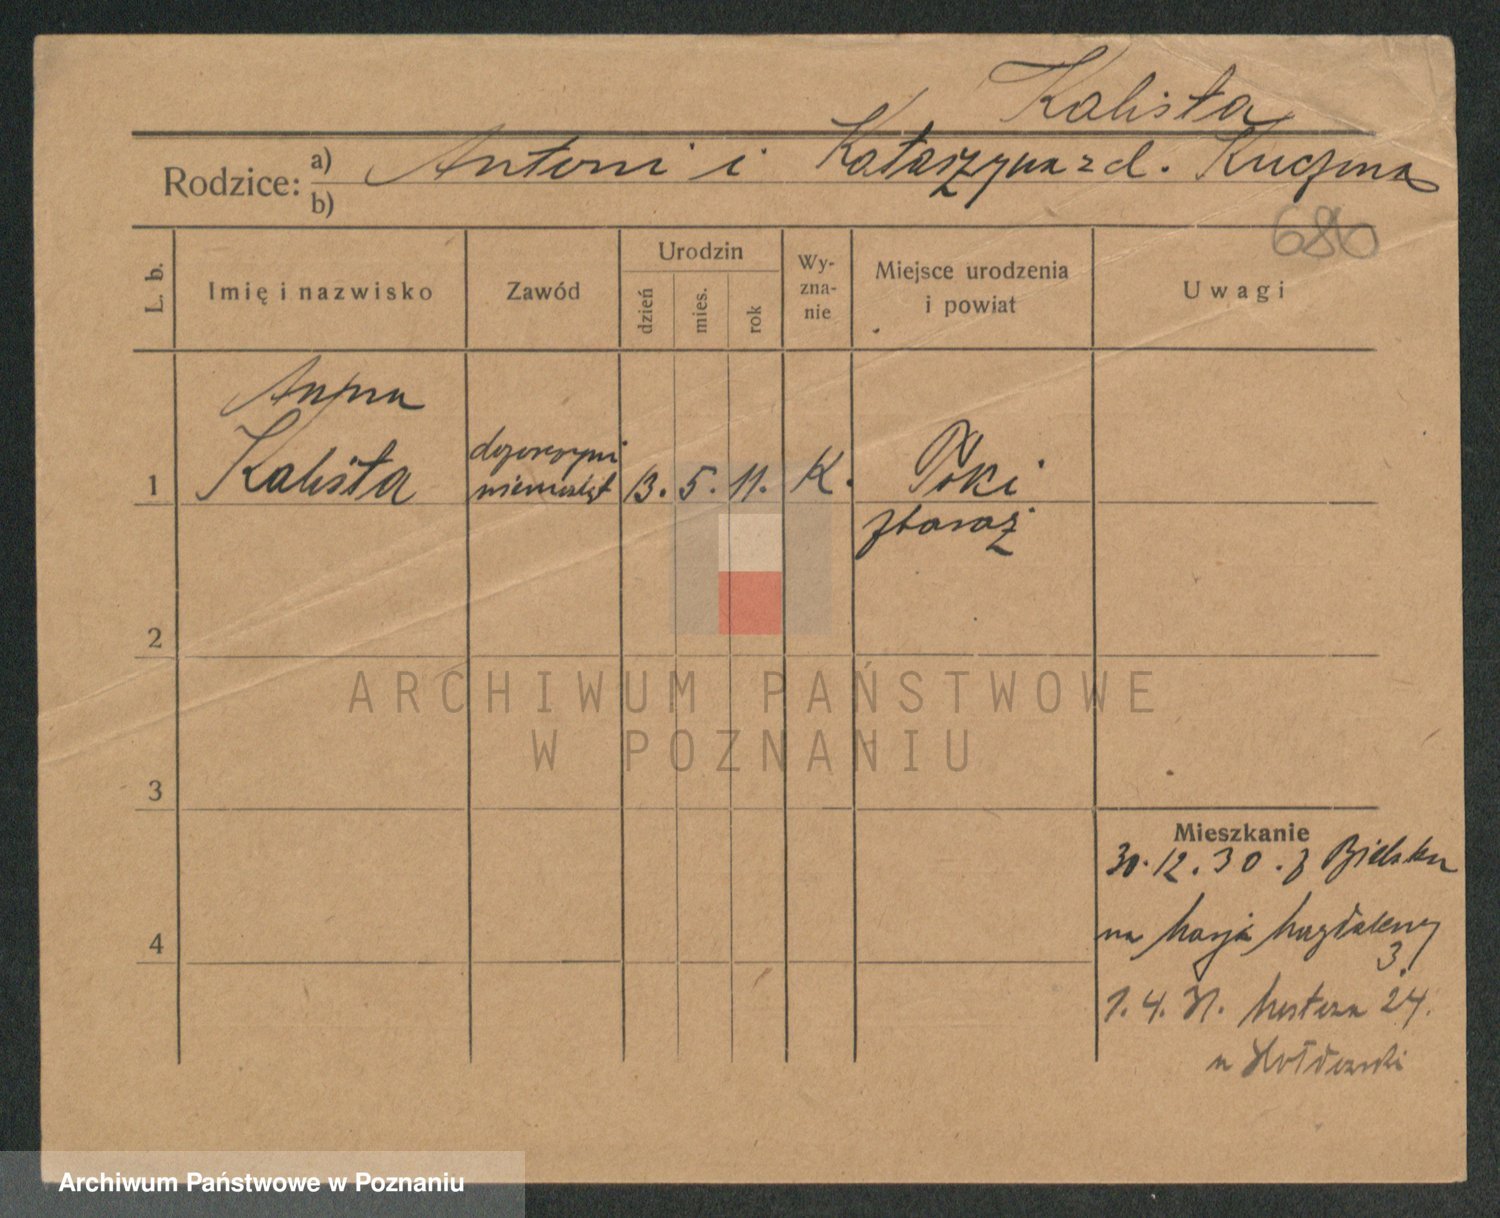 Kalista
Rodzice: a) Antoni i Katarzyna z d. Kuczma
b)
680
L. b.
Imię i nazwisko
Zawód
Urodzin
dzień
mies.
rok
Wy-
zna-
nie
Miejsce urodzenia
i powiat
Uwagi
Anna
1 Kalista 13. 5. 11. K.
zbaraż
2
3
4
Mieszkanie
30.12.30. z Bielska
na Marji Magdaleny
3.
1.4.31. 24.
u
ARCHIWUM PAŃSTWOWE
W POZNANIU
Archiwum Państwowe w Poznaniu